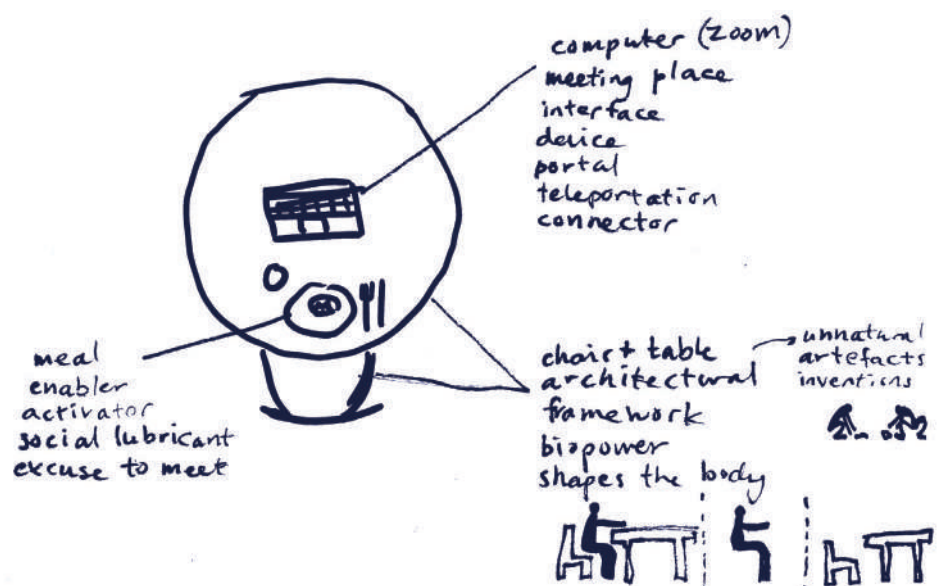 computer (zoom)
meeting place
interface
device
portal
teleportation
connector
meal
enabler
activator
social lubricant
excuse to meet
chair + table
architectural
framework
biopower
shapes the body
unnatural
artefacts
inventions